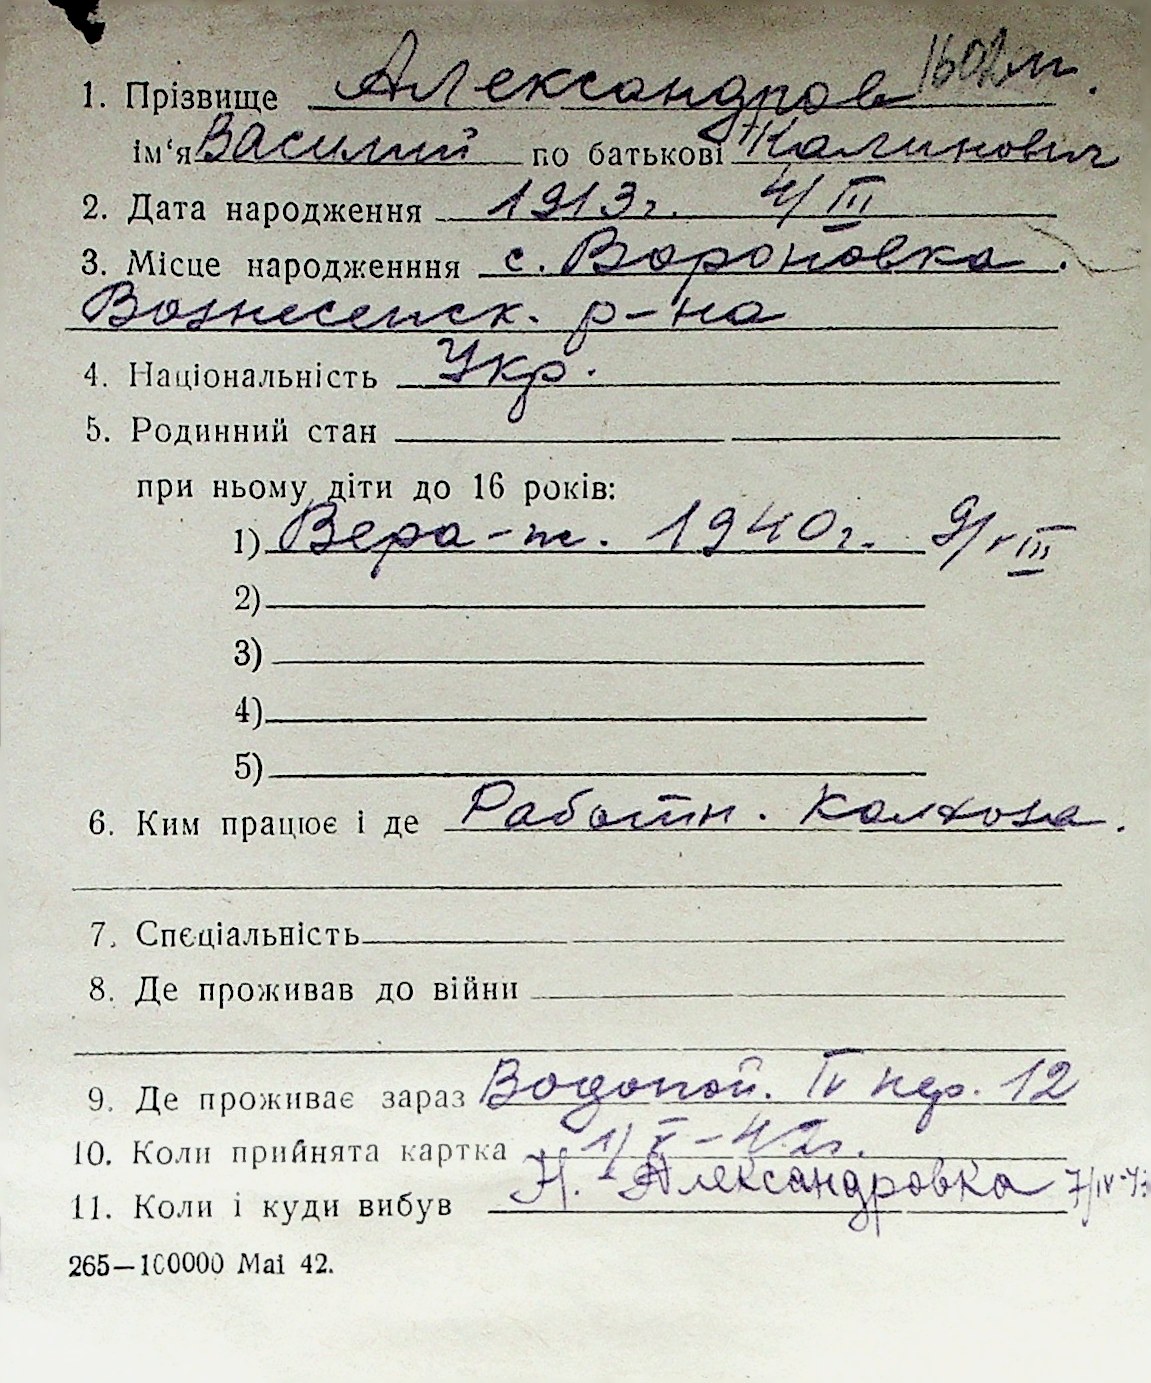 1. Прізвище Александров
ім'я Василий по батькові Калинович
2. Дата народження 1913 г. 4/III
3. Місце народженння с. Вороновка.
Вознесенск. р-на
4. Національність Укр.
5. Родинний стан
при ньому діти до 16 років:
1) Вера-ж. 1940 г.
2)
3)
4)
5)
6. Ким працює і де Работн. Колхоза.
7. Спєціальність
8. Де проживав до війни
9. Де проживає зараз Водопой. IV пер. 12
10. Коли прийнята картка 1/X-42г.
11. Коли і куди вибув Н. Александровка
265—100000 Mai 42.